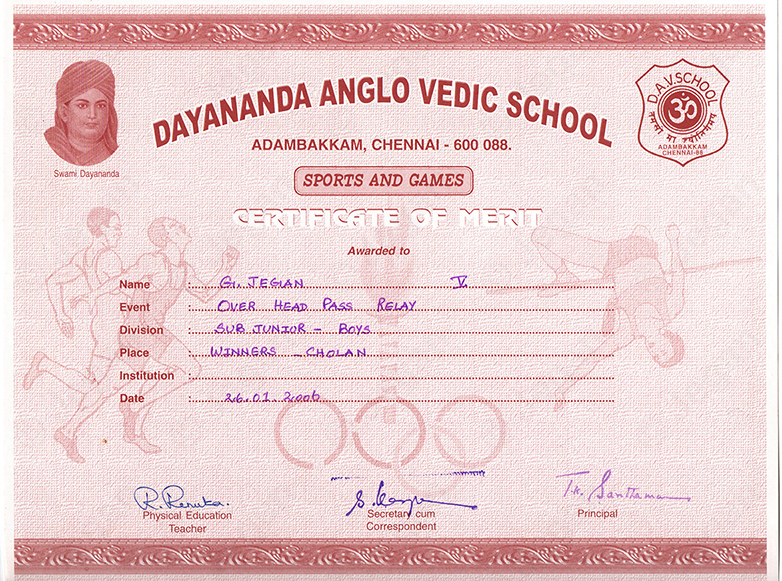 DAYANANDA ANGLO VEDIC SCHOOL
ADAMBAKKAM, CHENNAI - 600 088.
Swami Dayananda
D.A.V.SCHOOL
ॐ
तमसो मा ज्योतिर्गमय
ADAMBAKKAM
CHENNAI-88
SPORTS AND GAMES
CERTIFICATE OF MERIT
Awarded to
Name : G. JEGAN V.
Event : OVER HEAD PASS RELAY
Division : SUB JUNIOR - BOYS
Place : WINNERS - CHOLAN
Institution :
Date : 26.01.2006
R. Renuka.
Physical Education
Teacher
Secretary cum
Correspondent
Principal